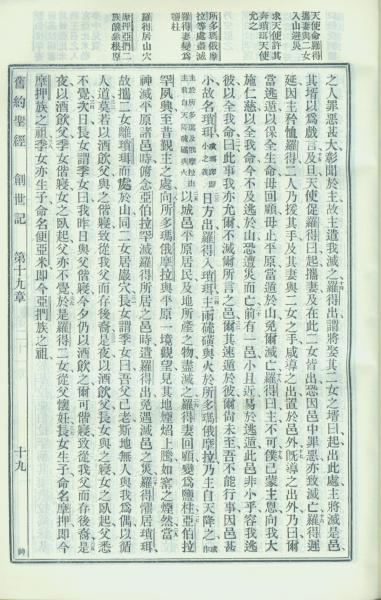 天使命羅得
攜妻與二女
入山避災
求天使許其
奔瑣珥天使
允之
所多瑪俄摩
拉等處盡滅
羅得妻變爲
鹽柱
羅得居山穴
摩押亞捫二
族醜惡根原
之人罪惡甚大彰聞於主故主遣我滅之羅得出謂將娶其二女之壻曰起出此處主將滅是邑
其壻以爲戲言及旦天使促羅得曰起攜妻及在此二女皆出恐因邑中罪惡亦致滅亡羅得遲
延因主矜恤羅得二人乃援其手及其妻與二女之手咸導之出置於邑外旣導之出外乃曰爾
當逃遁以保全生命毋回顧毋止平原當遁於山免爾滅亡羅得曰主不可僕已蒙主恩向我大
施仁慈以全我命今不及逃於山恐遭災而亡前有一邑小且近易於逃遁此邑非小乎容我逃
彼以全我命曰此事我亦允爾不滅爾所言之邑爾其速遁於彼爾尚未至吾不能行事因邑甚
小故名瑣珥瑣珥譯卽小之義日方出羅得入瑣珥主雨硫磺與火於所多瑪俄摩拉乃主自天降之或作
主於所多瑪及俄摩拉由主自天降硫磺與火以城邑平原居民及地所產之物盡滅之羅得妻回顧變爲鹽柱亞伯拉
罕夙興至昔日立主之處向所多瑪俄摩拉與平原一境觀望見其地煙焰上騰如窰之煙然當
神滅平原諸邑時俯念亞伯拉罕滅羅得所居之邑時遣羅得出免遇滅邑之災羅得懼居瑣珥
故攜二女離瑣珥而處於山同二女居巖穴長女謂季女曰吾父已老斯地無人與我爲偶以循
人道莫若以酒飲父與之偕寢致從我父而存後裔是夜以酒飲父長女與父寢女之臥起父悉
不覺次日長女謂季女曰我昨日與父偕寢今夕仍以酒飲之爾可偕寢致從我父而存後裔是
夜以酒飲父季女偕寢女之臥起父亦不覺於是羅得二女從父懷妊長女生子命名摩押卽今
摩押族之祖季女亦生子命名便亞米卽今亞捫族之祖
舊約聖經 創世記 第十九章 十九